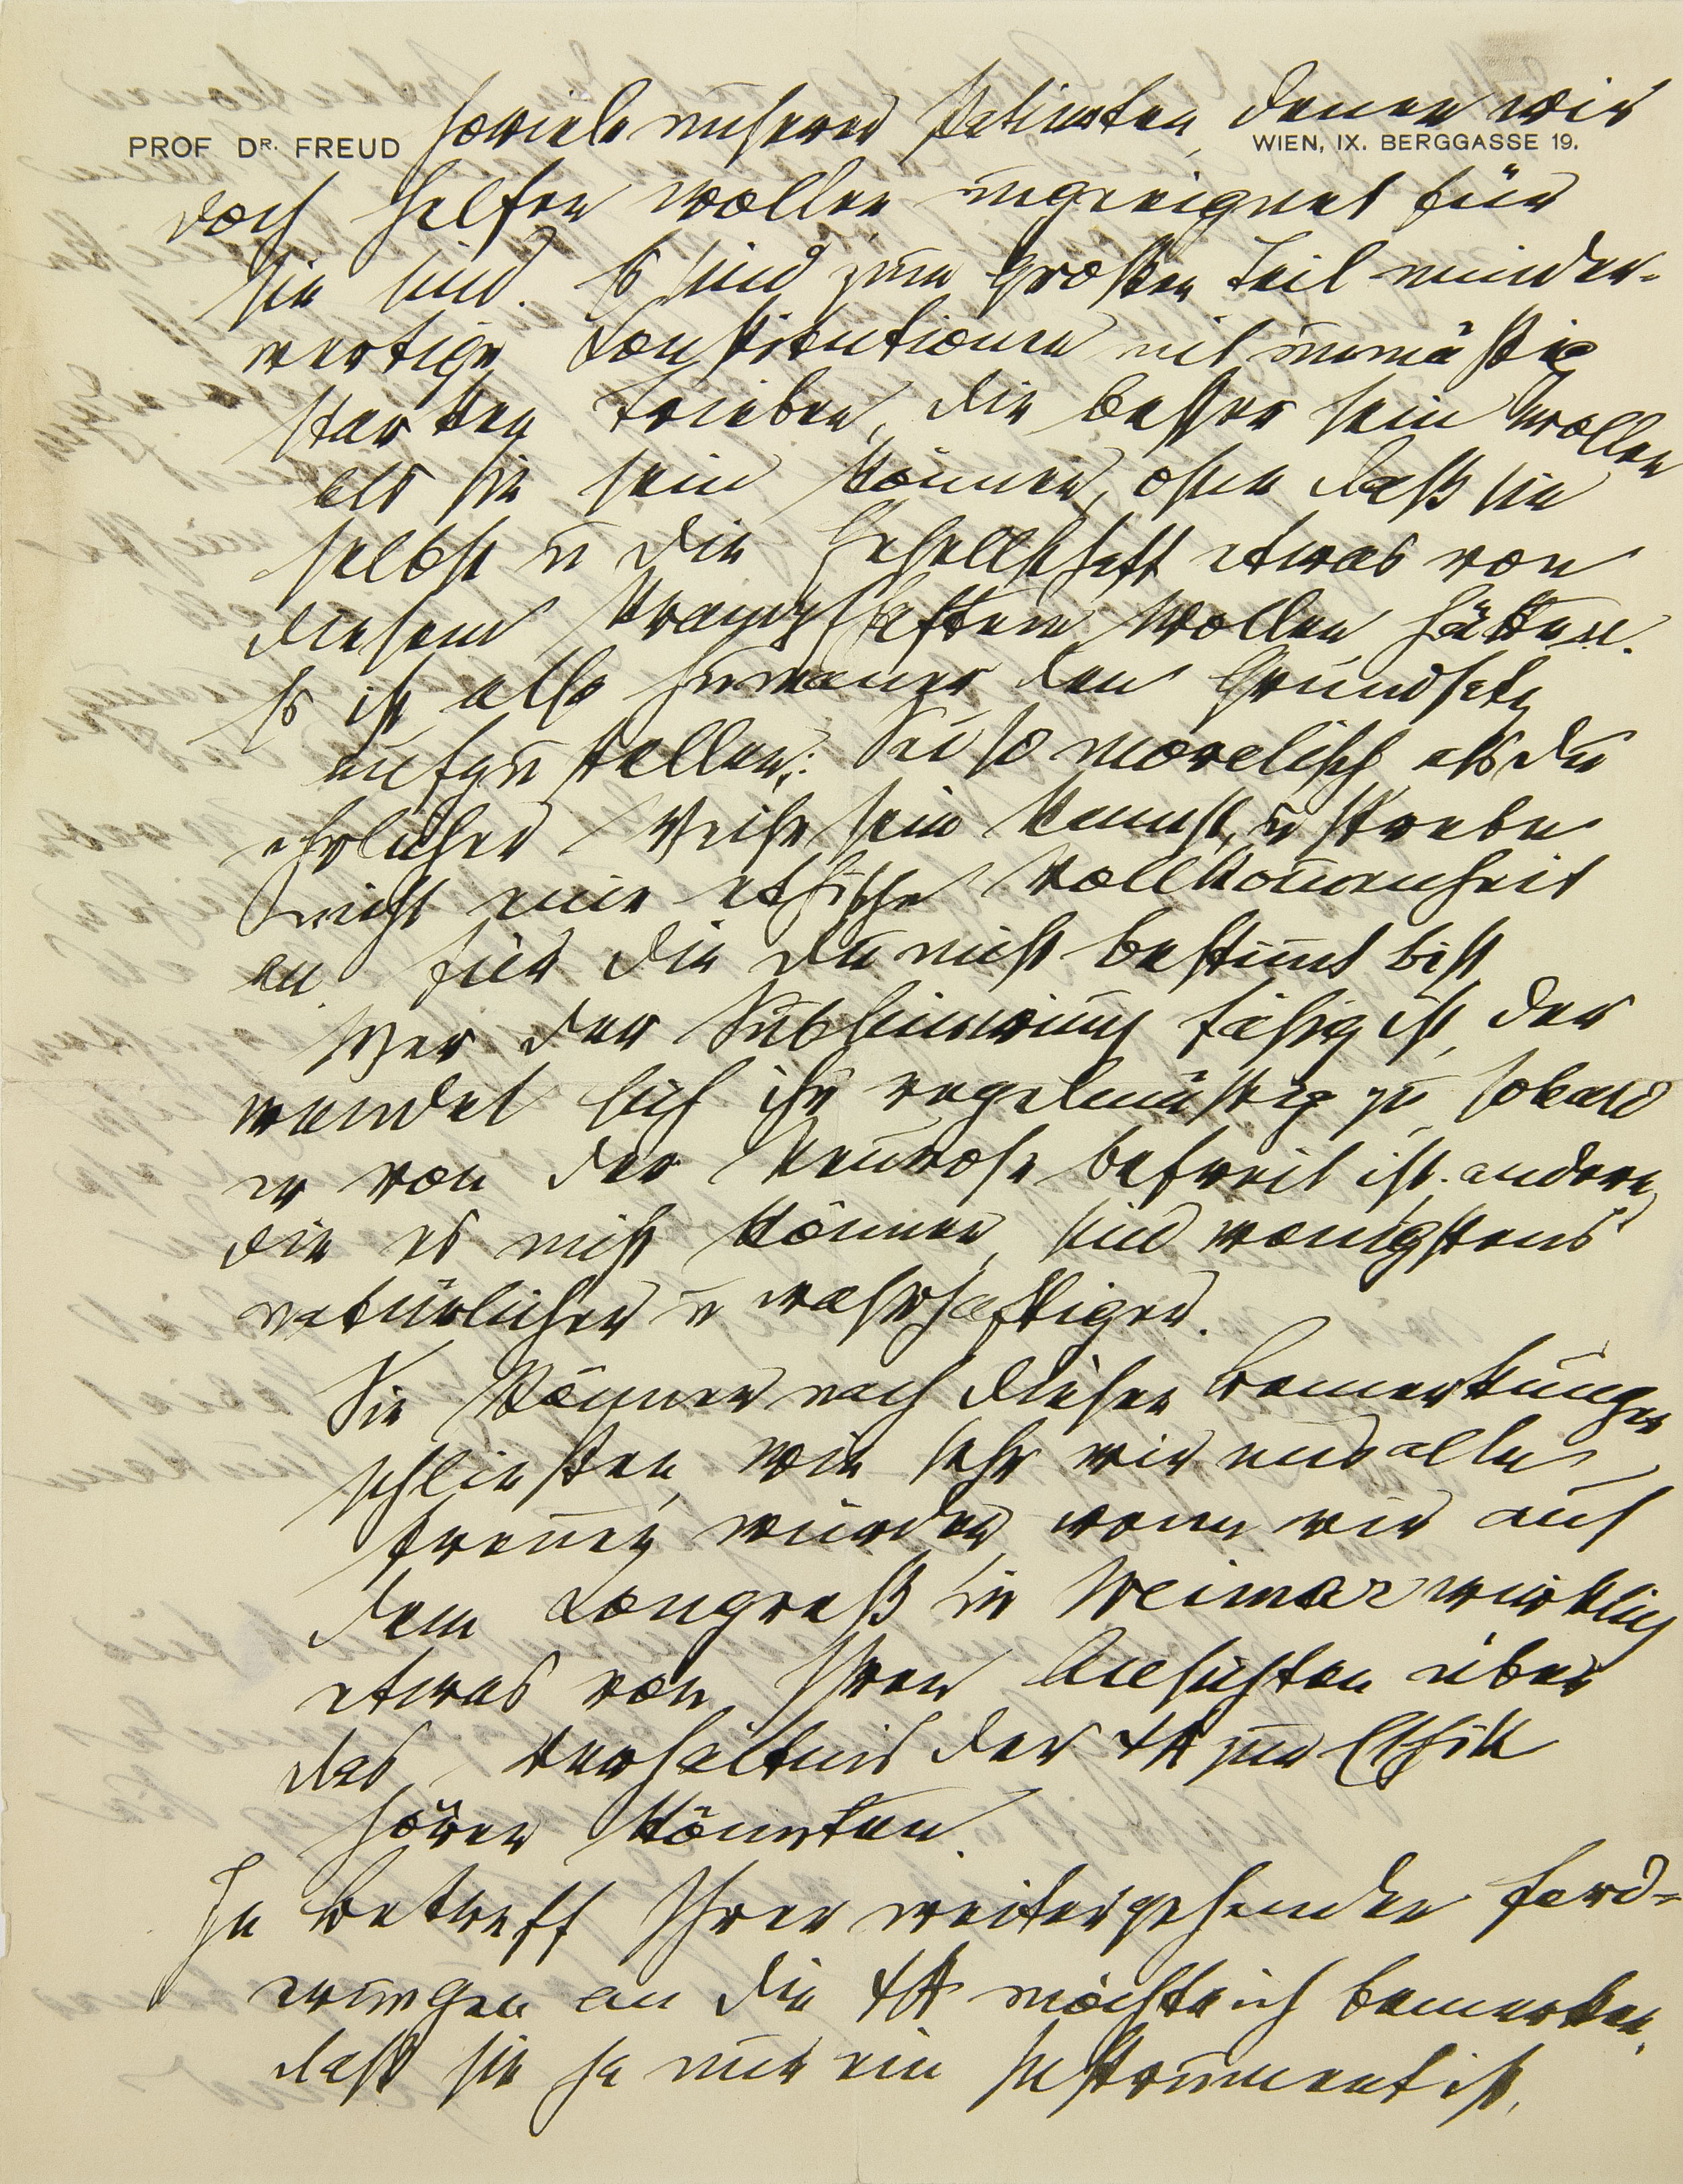 PROF DR. FREUD
WIEN, IX. BERGGASSE 19.
soviele unserer Patienten, denen wir
doch helfen wollen ungeeignet für
sie sind. Es sind zum großen Teil minder-
wertige Constitutionen mit unmäßig
starken Trieben, die besser sein wollen
als sie sein können, ohne daß sie
selbst u die Gesellschaft etwas von
diesem krampfhaften Wollen hätten.
Es ist also humaner den Grundsatz
aufzustellen: Sei so moralisch als du
ehrlicher Weise sein kannst, u strebe
nicht eine ethische Vollkommenheit
an für die du nicht bestimmt bist
Wer der Sublimirung fähig ist, der
wendet sich ihr regelmäßig zu sobald
er von der Neurose befreit ist. andere,
die es nicht können, sind wenigstens
natürlicher u wahrhaftiger.
Sie können nach diesen Bemerkungen
schließen, wie sehr wir uns alle
freuen würden, wenn wir auf
dem Congreß in Weimar wirklich
etwas von Ihren Ansichten über
das Verhältnis der ΨA zur Ethik
hören könnten.
In Betreff Ihrer weitergehenden Ford-
erungen an die ΨA möchte ich bemerken,
daß sie ja nur ein Instrument ist,